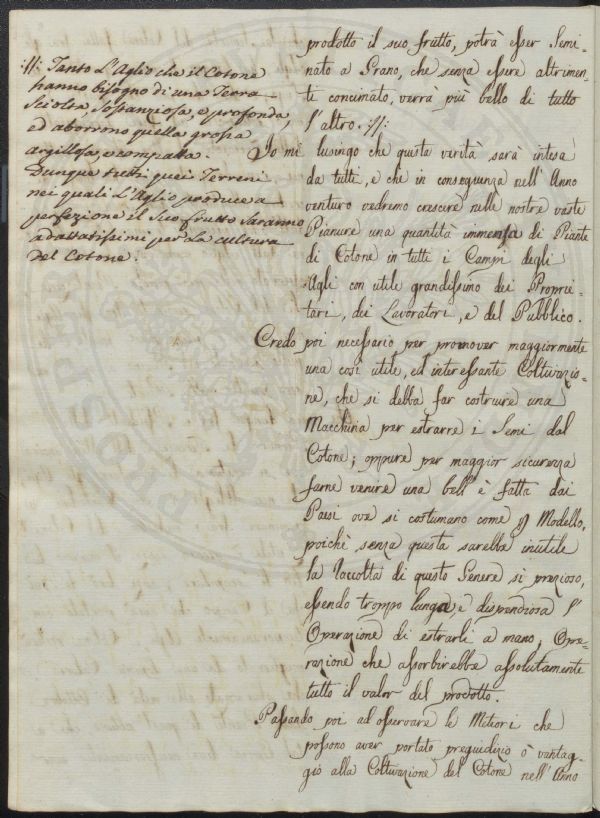 :||: Tanto L'Aglio che il Cotone
hanno bisogno di una Terra
Sciolta, Sostanziosa, e profonda,
ed aborrono quella grossa
argillosa, e compatta.
Dunque tutti quei Terreni
nei quali L'Aglio produce a
perfezione il Suo frutto Saranno
adattatissimi per La cultura
del Cotone.
prodotto il suo frutto, potrà esser Semi-
nato a Grano, che senza essere altrimen-
ti concimato, verrà più bello di tutto
l'altro. :||:
Io mi lusingo che questa verità sarà intesa
da tutti, e che in conseguenza nell'Anno
venturo vedremo crescere nelle nostre vaste
Pianure una quantità immensa di Piante
di Cotone in tutti i Campi degli
Agli con utile grandissimo dei Proprie-
tari, dei Lavoratori, e del Pubblico.
Credo poi necessario per promover maggiormente
una così utile, ed interessante Coltivazio-
ne, che si debba far costruire una
Macchina per estrarre i Semi dal
Cotone; oppure per maggior sicurezza
farne venire una bell'è fatta dai
Paesi ove si costumano come p Modello,
poichè senza questa sarebbe inutile
la raccolta di questo Genere sì prezioso,
essendo troppo lunga, e dispendiosa l'
Operazione di estrarli a mano, Ope-
razione che assorbirebbe assolutamente
tutto il valor del prodotto.
Passando poi ad osservare le Meteori che
possono aver portato pregiudizio ò vantag-
gio alla Coltivazione del Cotone nell'Anno
PROSPE